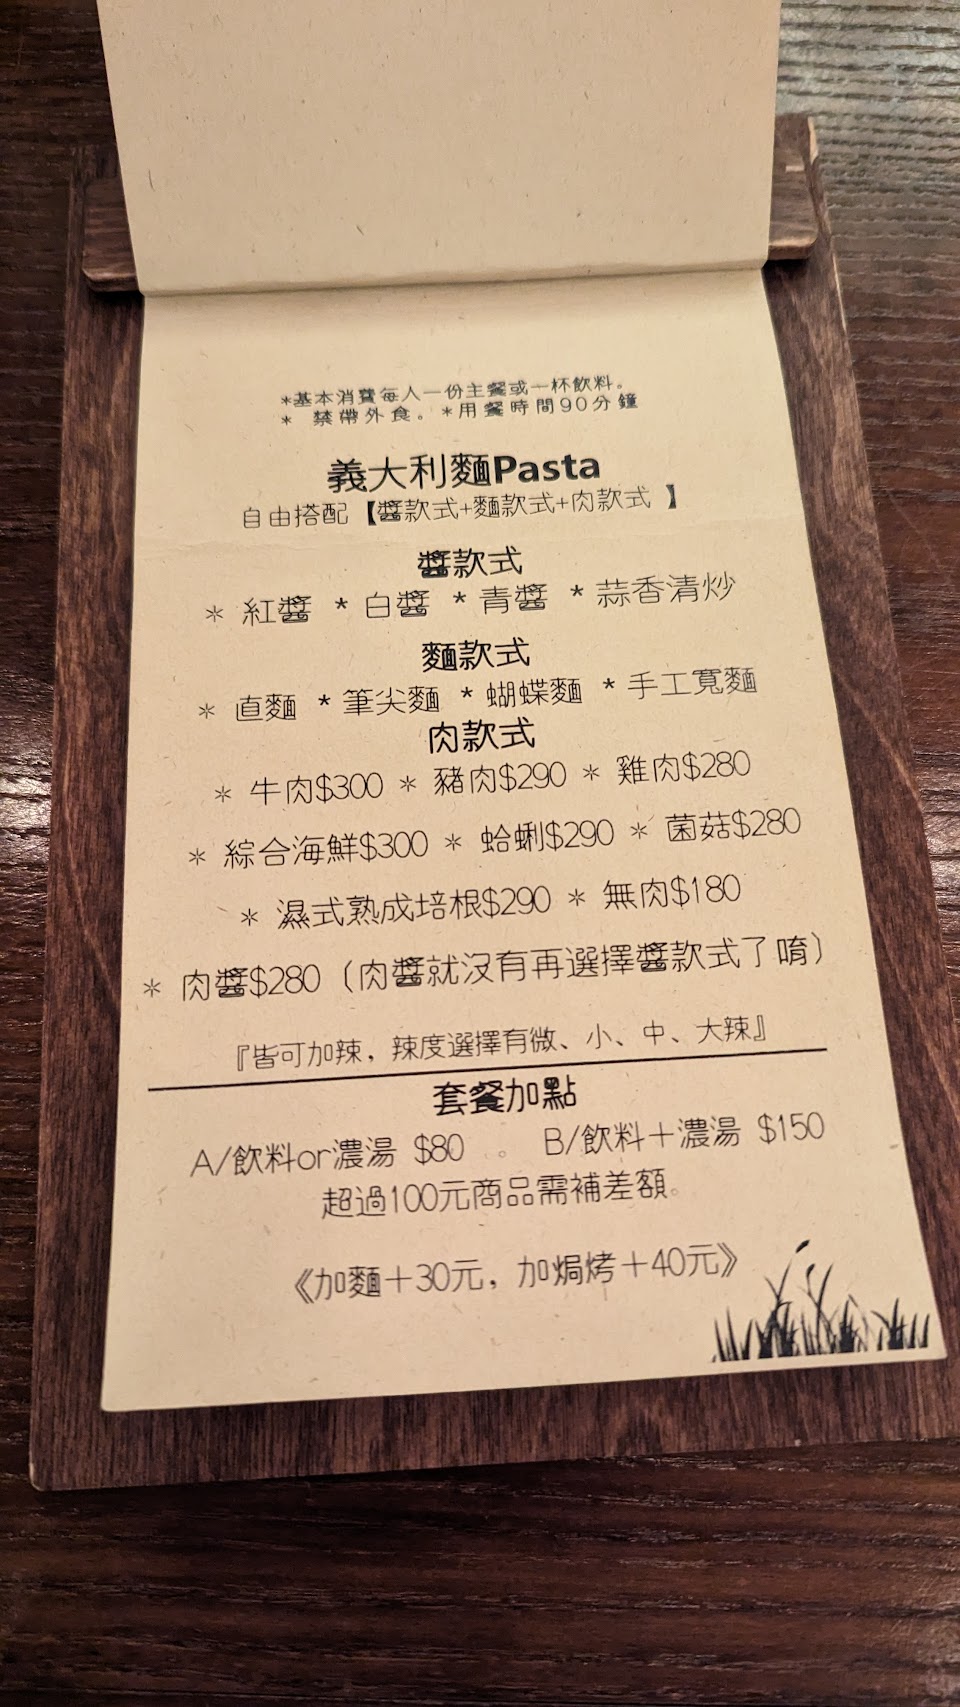 *基本消費每人一份主餐或一杯飲料。
* 禁帶外食。*用餐時間90分鐘
義大利麵Pasta
自由搭配【醬款式+麵款式+肉款式 】
醬款式
* 紅醬 * 白醬 * 青醬 * 蒜香清炒
麵款式
* 直麵 * 筆尖麵 * 蝴蝶麵 * 手工寬麵
肉款式
* 牛肉$300 * 豬肉$290 * 雞肉$280
* 綜合海鮮$300 * 蛤蜊$290 * 菌菇$280
* 濕式熟成培根$290 * 無肉$180
* 肉醬$280（肉醬就沒有再選擇醬款式了唷）
『皆可加辣，辣度選擇有微、小、中、大辣』
套餐加點
A/飲料or濃湯 $80 。 B/飲料＋濃湯 $150
超過100元商品需補差額。
《加麵＋30元，加焗烤＋40元》